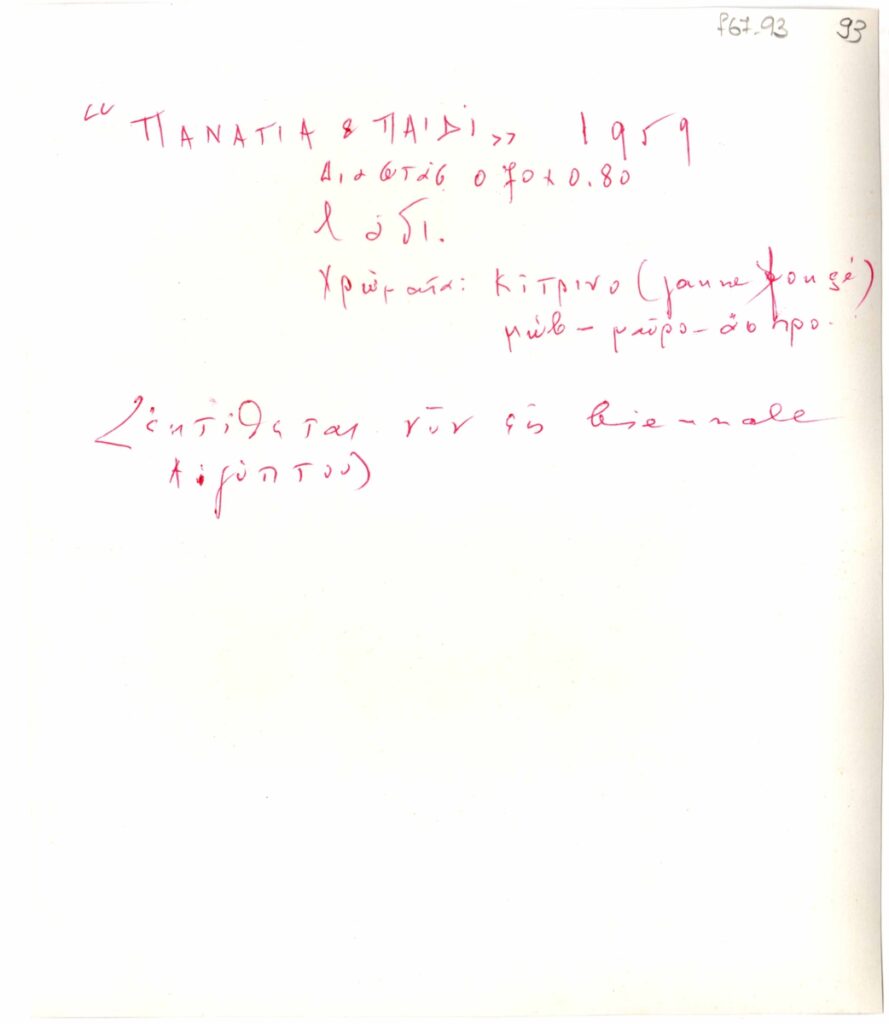 f67.93 93
"ΠΑΝΑΓΙΑ & ΠΑΙΔΙ,, 1959
Διαστάς 0 70 x 0.80
λάδι.
χρώματα: κίτρινο (jaune fonçé)
μώβ - μαῦρο - ἄσπρο.
(ἐκτίθεται νῦν εἰς biennale
Αἰγύπτου)